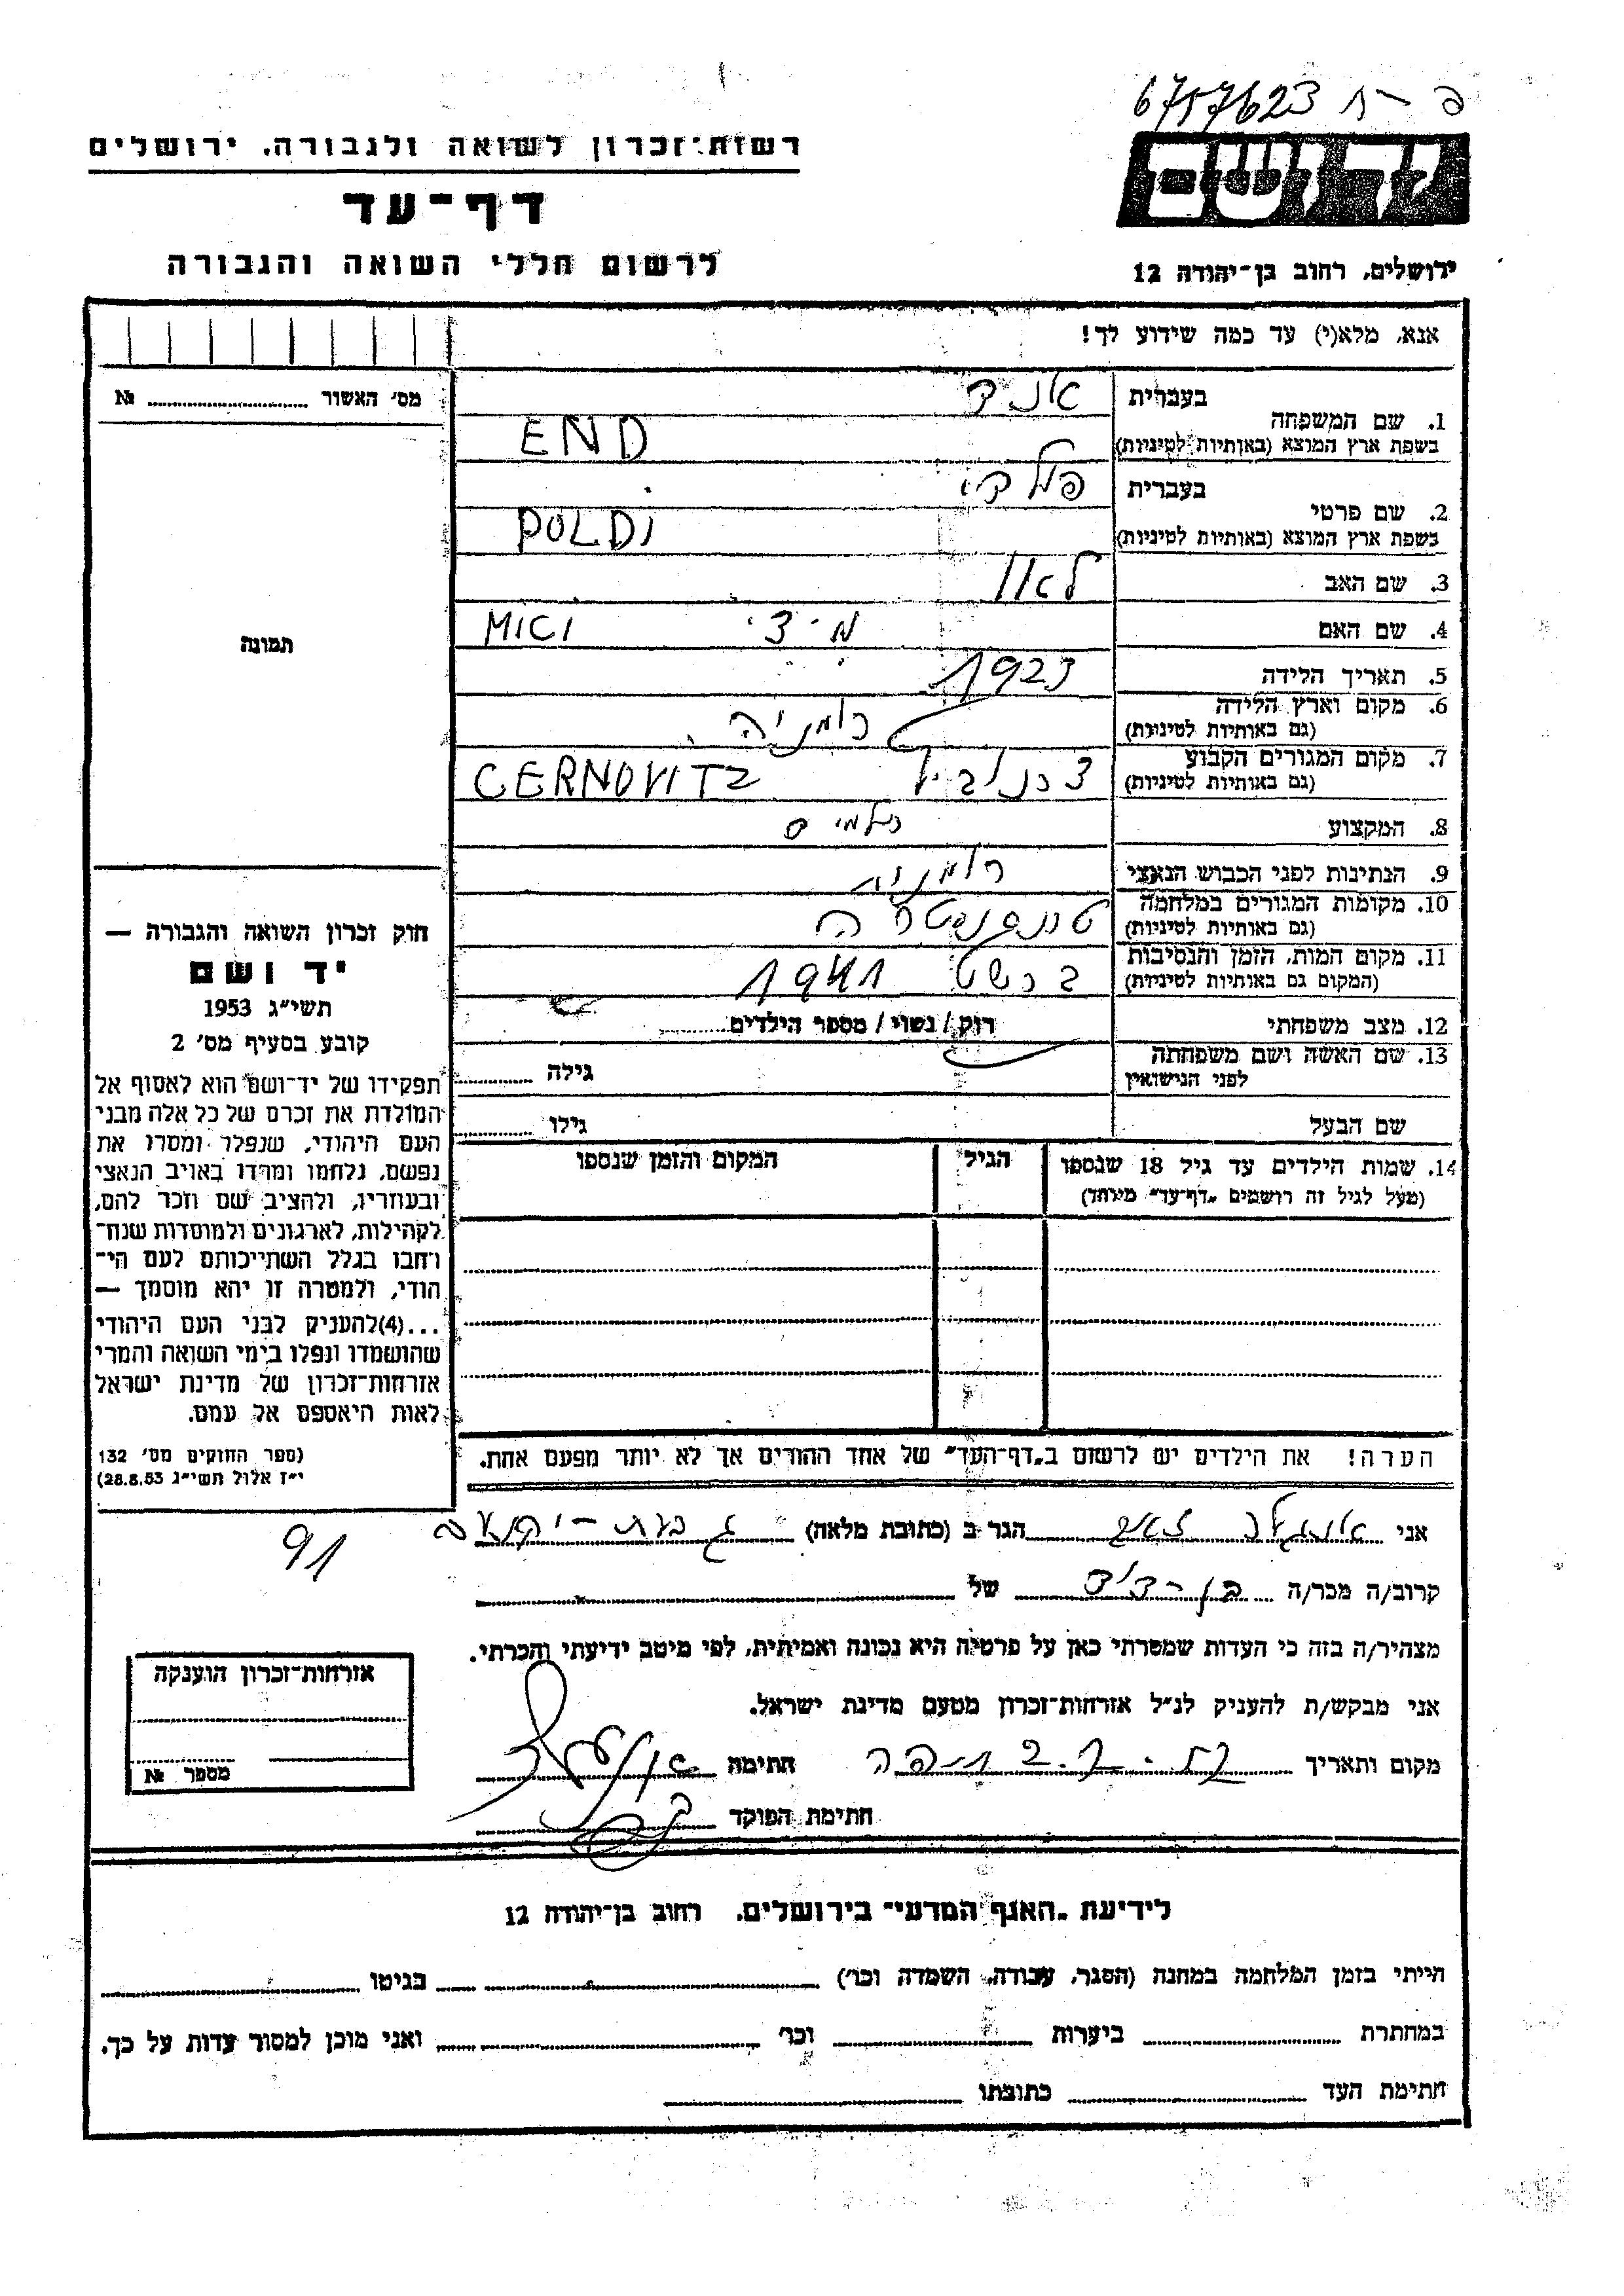 6757623 ח - פ
רשות-זכרון לשואה ולגבורה, ירושלים
דף-עד
לרשום חללי השואה והגבורה
יד ושם
ירושלים, רחוב בן-יהודה 12
אנא, מלא(י) עד כמה שידוע לך!
מס' האשור № 
תמונה
1. שם המשפחה
בעברית אנד
בשפת ארץ המוצא (באותיות לטיניות) END
2. שם פרטי
בעברית פולדי
בשפת ארץ המוצא (באותיות לטיניות) POLDI
3. שם האב לאון
4. שם האם מיצי MICI
5. תאריך הלידה 1923
6. מקום וארץ הלידה רומניה
(גם באותיות לטיניות)
7. מקום המגורים הקבוע CERNOVITZ
(גם באותיות לטיניות)
8. המקצוע
9. הנתינות לפני הכבוש הנאצי רומניה
10. מקומות המגורים במלחמה
(גם באותיות לטיניות)
11. מקום המות, הזמן והנסיבות 1941
(המקום גם באותיות לטיניות)
12. מצב משפחתי רוק / נשוי / מספר הילדים
13. שם האשה ושם משפחתה גילה
לפני הנישואין
שם הבעל גילו
14. שמות הילדים עד גיל 18 שנספו הגיל המקום והזמן שנספו
(מעל לגיל זה רושמים "דף-עד" מיוחד)
הערה! את הילדים יש לרשום ב"דף-העד" של אחד ההורים אך לא יותר מפעם אחת.
חוק זכרון השואה והגבורה —
יד ושם
תשי"ג 1953
קובע בסעיף מס' 2
תפקידו של יד-ושם הוא לאסוף אל
המולדת את זכרם של כל אלה מבני
העם היהודי, שנפלו ומסרו את
נפשם, נלחמו ומרדו באויב הנאצי
ובעוזריו, ולהציב שם וזכר להם,
לקהילות, לארגונים ולמוסדות שנח-
רחבו בגלל השתייכותם לעם הי-
הודי, ולמטרה זו יהא מוסמך —
...(4)להעניק לבני העם היהודי
שהושמדו ונפלו בימי השואה והמרי
אזרחות-זכרון של מדינת ישראל
לאות היאספם אל עמם.
(ספר החוקים מס' 132
י"ז אלול תשי"ג 28.8.53)
91
אני הגר ב (כתובת מלאה)
קרוב/ה מכר/ה של
מצהיר/ה בזה כי העדות שמסרתי כאן על פרטיה היא נכונה ואמיתית, לפי מיטב ידיעתי והכרתי.
אני מבקש/ת להעניק לנ"ל אזרחות-זכרון מטעם מדינת ישראל.
מקום ותאריך חתימה
חתימת הפוקד
אזרחות-זכרון הוענקה
מספר №
לידיעת "האגף המדעי" בירושלים, רחוב בן-יהודה 12
הייתי בזמן המלחמה במחנה (הסגר, עבודה, השמדה וכו') בגיטו
במחתרת ביערות וכו' ואני מוכן למסור עדות על כך.
חתימת העד כתובתו